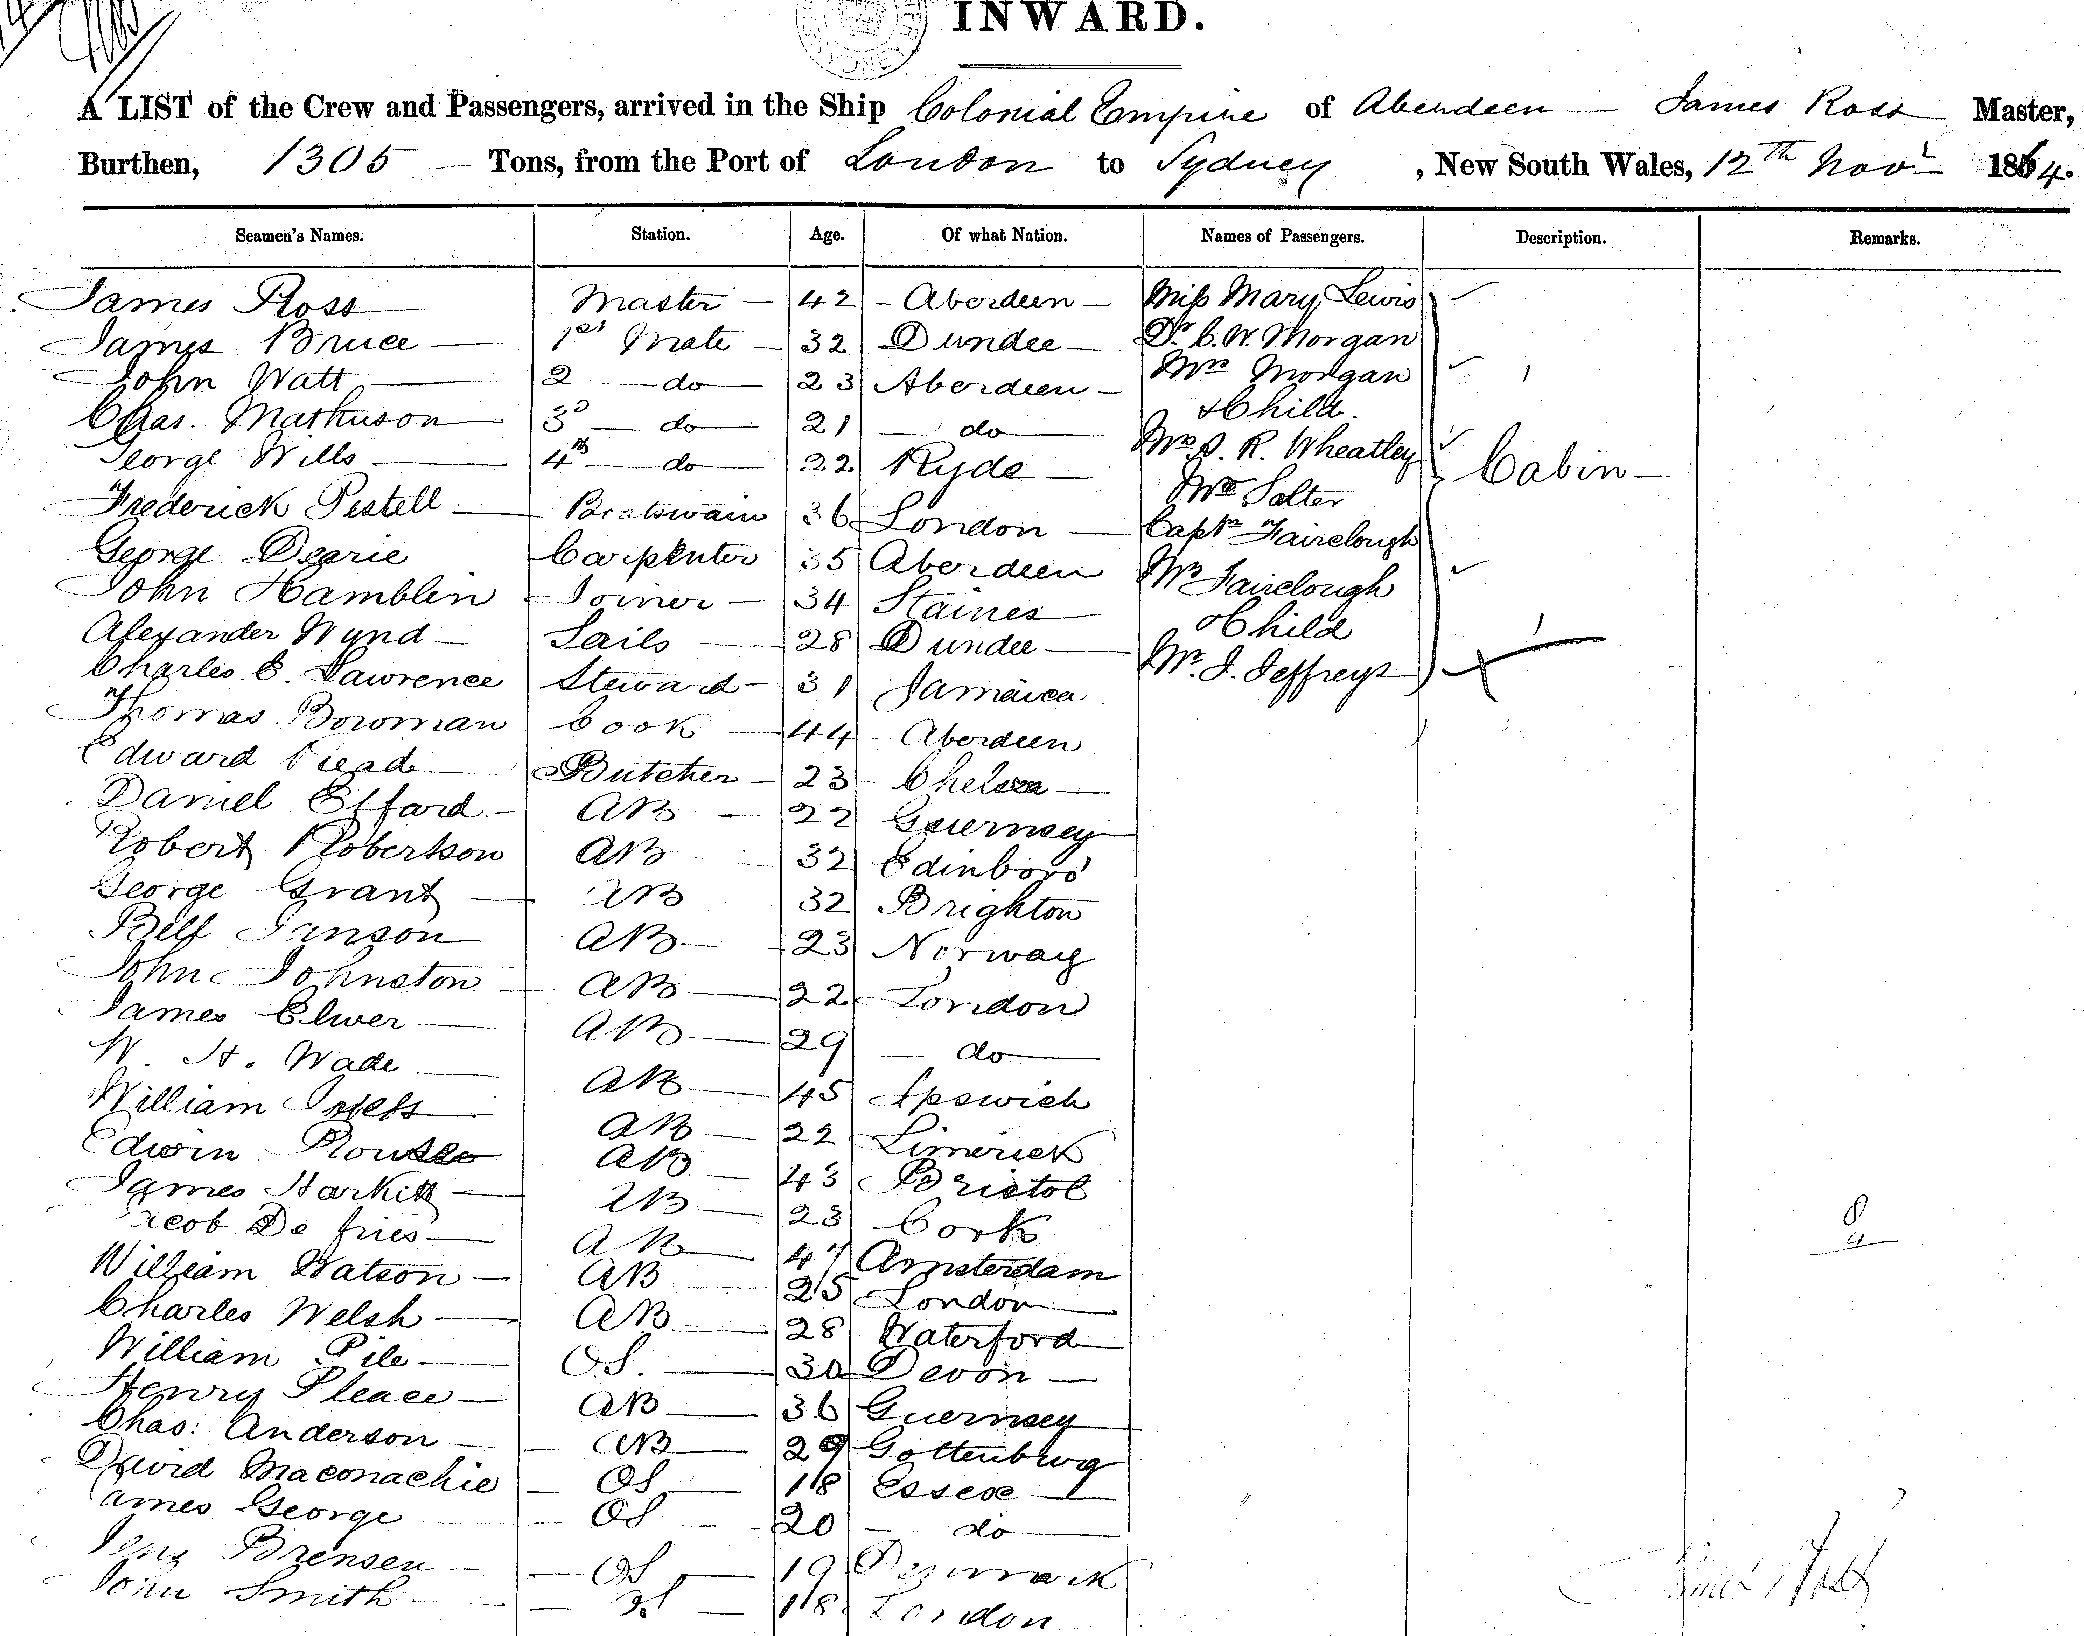 INWARD.
A LIST of the Crew and Passengers, arrived in the Ship Colonial Empire of Aberdeen — James Ross Master,
Burthen, 1305 — Tons, from the Port of London to Sydney, New South Wales, 12th Novr 1864.
Seamen's Names. Station. Age. Of what Nation. Names of Passengers. Description. Remarks.
James Ross Master 42 Aberdeen Miss Mary Lewis
James Bruce 1st Mate 32 Dundee Dr C. W. Morgan
John Watt 2 do 23 Aberdeen Mrs Morgan
Chas. Mathieson 3d do 21 do & Child
George Wills 4th do 22 Ryde R. Wheatley Cabin
Frederick Pestell Boatswain 36 London Salter
George Dearie Carpenter 35 Aberdeen Captn Fairclough
John Hamblin Joiner 34 Staines Mrs Fairclough
Alexander Wynd Sails 28 Dundee & Child
Charles E. Lawrence Steward 31 Jamaica Mr. J. Jeffreys
Thomas Bowman Cook 44 Aberdeen
Edward Read Butcher 23 Chelsea
Daniel Effard AB 22 Guernsey
Robert Robertson AB 32 Edinboro'
George Grant AB 32 Brighton
AB 23 Norway
John Johnston AB 22 London
James Elwer AB 29 do
W. H. Wade AB 45 Ipswich
William AB 22 Limerick
Edwin AB 43 Bristol
James AB 23 Cork
Jacob De fries AB 47 Amsterdam
William Watson AB 25 London
Charles Welsh AB 28 Waterford
William Pile OS. 30 Devon
Henry Pleace AB 36 Guernsey
Chas: Anderson AB 29 Gottenburg
David Maconachie OS 18 Essex
James George OS 20 do
Brensen OS 19 Denmark
John Smith OS 18 London
James Ross